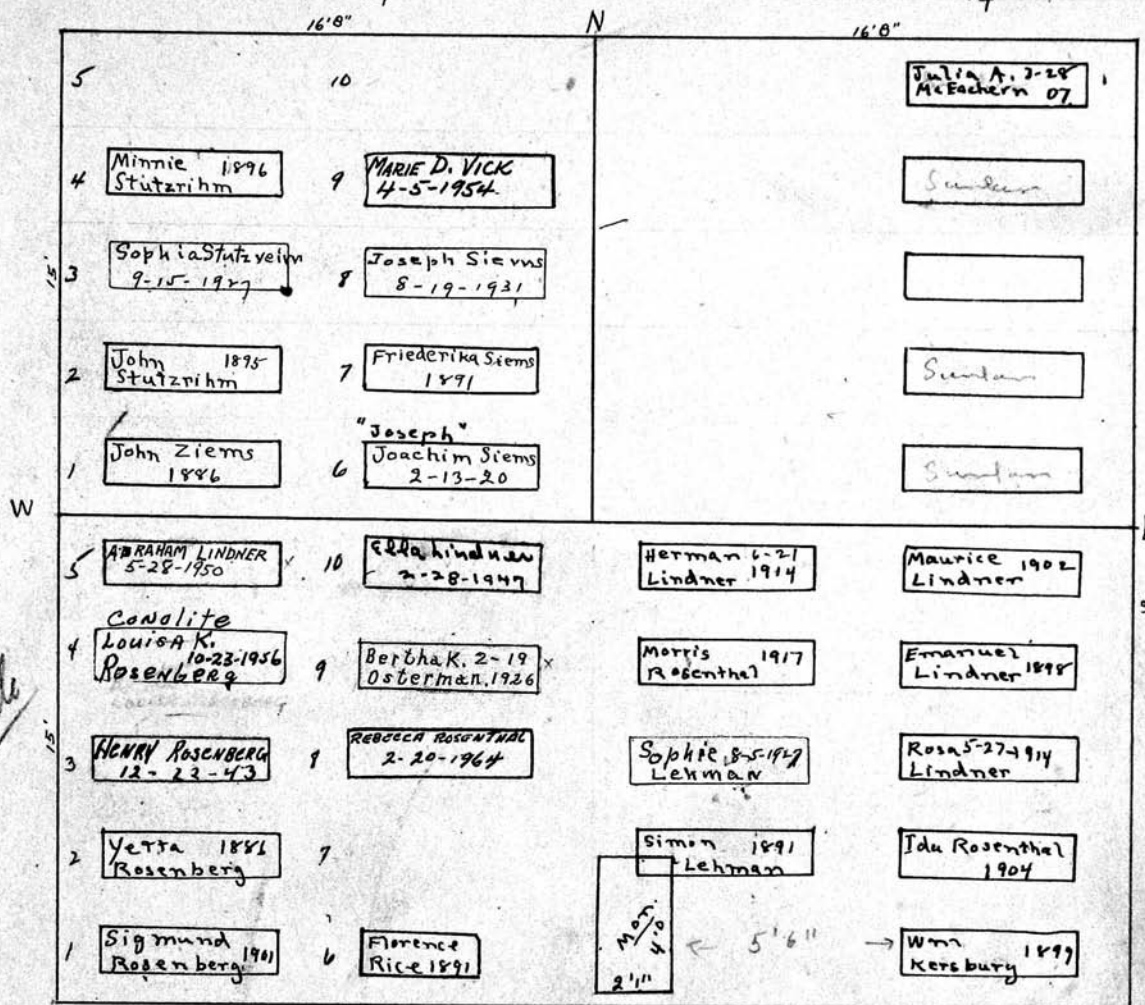 16'8" N 16'8"
5 10
Julia A. 3-28
McEachern 07
4
Minnie 1896
Stutzrihm
9
MARIE D. VICK
4-5-1954
3
Sophia Stutzreim
9-15-1927
8
Joseph Siems
8-19-1931
15'
2
John 1895
Stutzrihm
7
Friederika Siems
1891
1
John Ziems
1886
6
"Joseph"
Joachim Siems
2-13-20
W
5
ABRAHAM LINDNER
5-28-1950
x
10
Ella Lindner
2-28-1947
Herman 6-21
Lindner 1914
Maurice 1902
Lindner
4
Conolite
Louisa K.
10-23-1956
Rosenberg
9
Bertha K. 2-19
Osterman. 1926
x
Morris 1917
Rosenthal
Emanuel
Lindner 1898
15'
3
HENRY ROSENBERG
12-22-43
8
REBECCA ROSENTHAL
2-20-1964
Sophie 8-5-1927
Lehman
Rosa 5-27-1914
Lindner
2
Yetta 1886
Rosenberg
7
Simon 1891
Lehman
Ida Rosenthal
1904
1
Sigmund
Rosenberg 1901
6
Florence
Rice 1891
Mon.
4'0
2'1"
← 5'6" →
Wm 1899
Kersbury